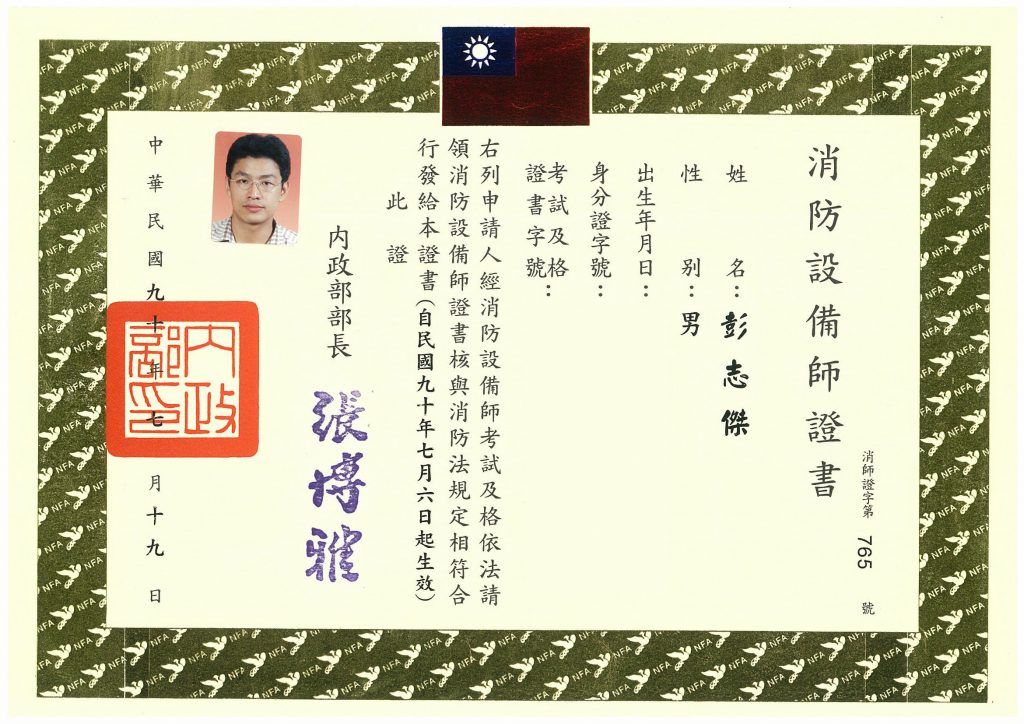 消防設備師證書
消師證字第 765 號
姓名：彭志傑
性別：男
出生年月日：
身分證字號：
考試及格
證書字號：
右列申請人經消防設備師考試及格依法請
領消防設備師證書核與消防法規定相符合
行發給本證書（自民國九十年七月六日起生效）
此證
內政部部長
張博雅
中華民國九十年七月十九日
內政
部印
NFA